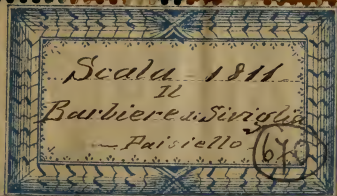 Scala - 1811
Il
Barbiere di Siviglia
— Paisiello